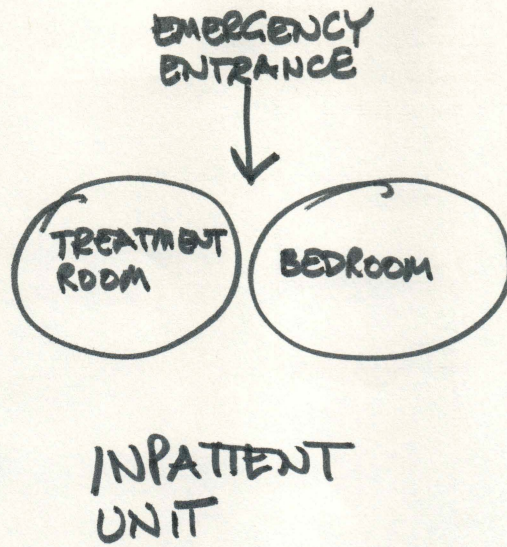 EMERGENCY
ENTRANCE
TREATMENT
ROOM
BEDROOM
INPATIENT
UNIT